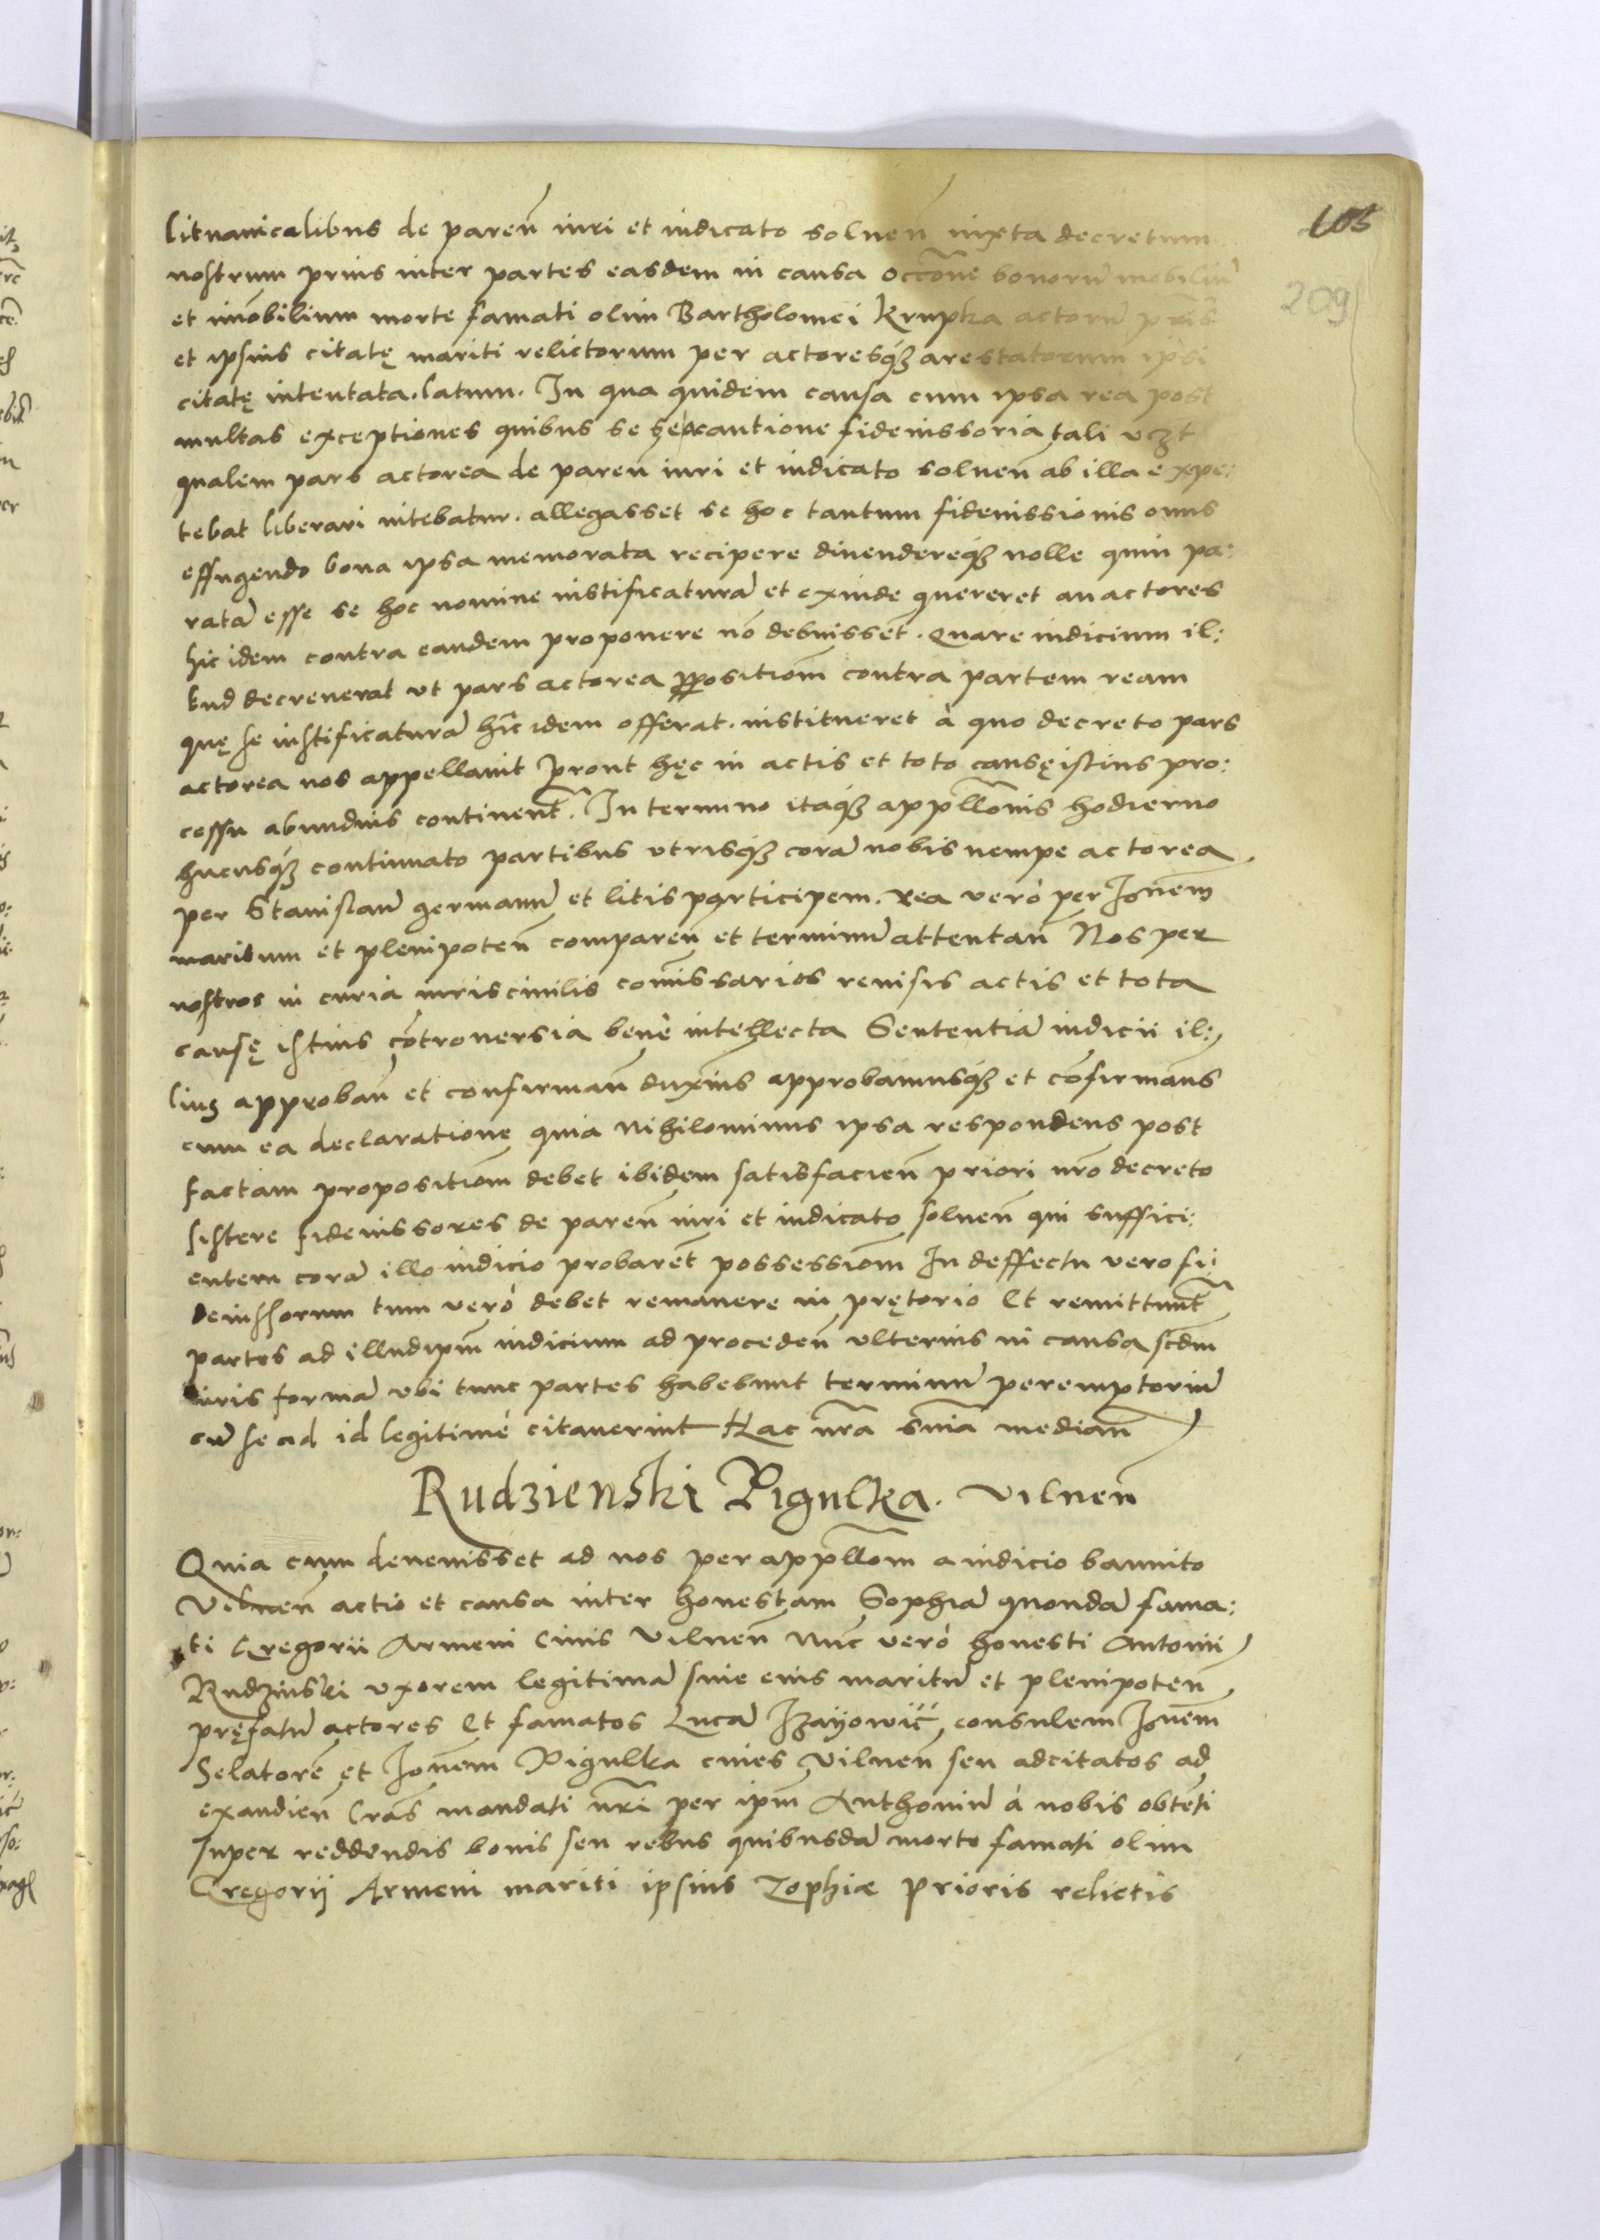 lituanicalibus de pareñ iuri et iudicato soluen̄ iuxta decretum
nostrum prius inter partes easdem in causa occōne bonorū mobiliū
et im̄obilium morte famati olim Bartholomei Krupka actorū pr̄is
et ipsius citatę mariti relictorum per actoresq́ȝ arestatorum ipsi
citatę intentata. latum. In qua quidem causa cum ipsa rea post
multas exceptiones quibus se cautione fideiussoria tali vczt
qualem pars actorea de pareñ iuri et iudicato soluen̄ ab illa expe:
tebat liberari nitebatur. allegasset se hoc tantum fideiussionis onus
effugendo bona ipsa memorata recipere diuendereq́ȝ nolle quin pa:
ratā esse se hoc nomine iustificaturā et exinde quereret an actores
hic idem contra eandem proponere nō debuissēt. Quare iudicium il:
lud decreuerat vt pars actorea ꝓpositiom̄ contra partem ream
quę se iustificaturā hic idem offerat. institueret à quo decreto pars
actorea nos appellauit prout hęc in actis et toto causę istius pro:
cessu abundius continent̄. In termino itaq́ȝ appllōnis hodierno
hucusq́ȝ continuato partibus vtrisq́ȝ corā nobis nempe actorea
per Stanislaū germanū et litis participem. rea verò per Ioñem
maritum et plenipoteñ compareñ et terminū attentañ Nos per
nostros in curia iuris ciuilis com̄issarios reuisis actis et tota
causę istius cōtrouersia benè intellecta Sententiā iudicii il:
lius approbañ et confirmañ duxim̄s approbamusq́ȝ et cōfirmam̄s
cum ea declaratione quia nihilominus ipsa respondens post
factam propositiom̄ debet ibidem satisfacieñ priori nr̄o decreto
sistere fideiussores de pareñ iuri et iudicato solueñ qui suffici:
entem corā illo iudicio probarēt possessiom̄ In deffectu vero fi:
deiussorum tum verò debet remanere in prętorio Et remittunt̄
partes ad illud ipm̄ iudicium ad procedeñ vlterius in causa scdm̄
iuris formā vbi tunc partes habebunt terminū peremptoriū
cū se ad id legitimè citauerint Hac nr̄a sn̄ia mediañ
Rudzienski Pigulka. Vilneñ
Quia cum deuenisset ad nos per appllōm a iudicio bannito
Vilneñ actio et causa inter honestam Sophiā quondā fama:
ti Gregorii Armeni Ciuis Vilneñ nūc verò honesti Antonii
Rudzinski vxorem legitimā siue eius maritū et plenipoteñ
pręfatū actores Et famatos Lucā Izayowić consulem Ioñem
Selatorē et Ioñem Pigulka ciues Vilneñ seu adcitatos ad
exaudieñ lrās mandati nr̄i per ipm̄ Anthoniū à nobis obtēti
super reddendis bonis seu rebus quibusdā morte famati olim
Gregorij Armeni mariti ipsius Zophiæ prioris relictis
209